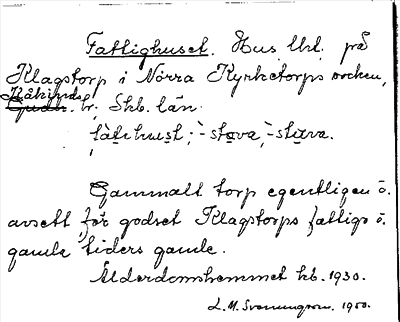 Fattighuset. Hus lht. på
Klagstorp i Norra Kyrketorps socken,
Kåkinds
Gudh. hr. Skb. län.
fàtihust; -stova, -stuva.
Gammalt torp egentligen o.
avsett för godset Klagstorps fattigs o.
gamle tiders gamle.
Ålderdomshemmet kb. 1930.
L. M. Svenungsson. 1950.